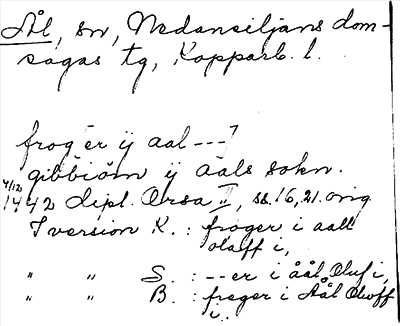 Ål, sn, Nedansiljans dom-
sagas tg, Kopparb. l.
froger ij aal ---
gibbiom ij aals sokn.
4/12
1442 Dipl. Orsa II, ss. 16, 21. orig
I version K. : froger i aall
olaff i,
" " S. : --er i åål Oluf i,
" " B. : froger i Aål Oloff
i..